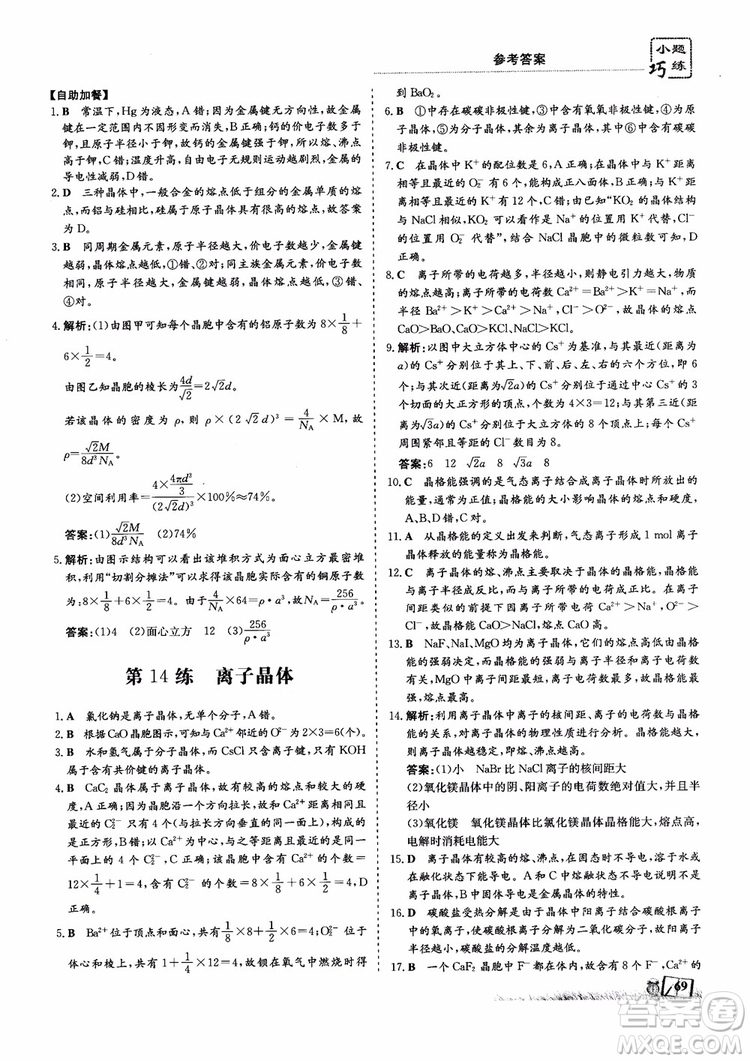 参考答案
小题
巧练
【自助加餐】
1. B 常温下，Hg为液态，A错；因为金属键无方向性，故金属键在一定范围内不因形变而消失，B正确；钙的价电子数多于钾，故钙的金属键强于钾，故熔、沸点高于钾，C错；温度升高，金属的导电性减弱，D错。
2. D 三种晶体中，一般合金的熔点低于组分的金属单质熔点，而铝与硅相比，硅属于原子晶体，具有较高的熔点，故答案为D。
3. B 同周期金属元素，原子半径越大，价电子数越少，金属键越弱，晶体熔点越低，①错。组成金属的原子半径越小，价电子数越多，金属键越强，晶体熔点越高，②③正确。同主族金属自上而下，原子半径越大，金属键越弱，晶体熔点越低，④错。
4. 解析：(1)由图甲可知每个晶胞中含有的铝原子数为8×1/8+
6×1/2=4。
由图乙知晶胞的棱长为4d/√2=2√2d。
若该晶胞的密度为ρ，则ρ×(2√2d)³=4/N_A×M，故
ρ=√2M/8d³N_A。
(2)空间利用率=(4×4πd³/3)/(2√2d)³×100%≈74%。
答案：(1)√2M/8d³N_A (2)74%
5. 解析：由图示结构可看出该堆积方式为面心立方最密堆积；利用“切割分摊法”可推出每个晶胞中含有的铜原子数为：8×1/8+6×1/2=4。由于4/N_A×64=ρ·a³，故N_A=256/ρ·a³。
答案：(1)4 (2)面心立方 12 (3)256/ρ·a³
第14练 离子晶体
1. A 氯化钠是离子晶体，无单个分子，A错。
2. B 根据CaO晶胞图示，可知与Ca²⁺邻近的O²⁻为2×3=6(个)。
3. B 水和氢气属于分子晶体，而CsCl只含离子键，只有KOH属于含有共价键的离子晶体。
4. B CaC₂晶体属于离子晶体，故熔点较高、硬度较大，A正确；因为晶胞沿一个方向拉长，故每个Ca²⁺周围距离最近的C₂²⁻有4个(与拉长方向垂直的同一面上)，B错误；以C₂²⁻为中心，与之等距离且最近的C₂²⁻也是同一平面上的4个，C正确；一个晶胞中含有Ca²⁺为
12×1/4+1=4，含有C₂²⁻为8×1/8+6×1/2=4，D
正确。
5. B Ba²⁺位于顶点和面心，共有8×1/8+6×1/2=4，O₂²⁻位于
体心和棱心，共有1+12×1/4=4，故钡在氧气中燃烧时得
到BaO₂。
6. B ①中存在碳碳非极性键，②中含有氧氧非极性键，③为原子晶体，其中含有碳碳非极性共价键，⑥中含有碳碳非极性键。
7. C 在晶体中K⁺的配位数是6，即晶体中与每个K⁺距离最近的O₂⁻有6个，能形成正八面体，B正确；因KO₂的结构与NaCl相似，KO₂可以看做Na⁺的位置用K⁺代替，Cl⁻的位置用O₂⁻代替”，故NaCl晶胞中的微粒数可知C错误。
8. C 离子所带的电荷越多，半径越小，则静电引力越大，晶体的熔点越高，因所带电荷数Ca²⁺=Ba²⁺>Na⁺，离子半径Ba²⁺>K⁺>Ca²⁺>Na⁺，故晶体的熔点CaO>BaO>NaCl>KCl。
9. 解析：以图中大立方体中心的Cs⁺为基准，与其最近的(距离为a)Cs⁺分别位于其上、下、前、后、左、右的六个方位；与其次近(距离为√2a)的Cs⁺在通过中心Cs⁺的3个切面的大正方形的顶点，个数为4×3=12；与其第三近(距离为√3a)的Cs⁺分别位于大立方体的8个顶点上；每个Cs⁺周围距离相等且最近的Cl⁻共有8个。
答案：6 12 √2a 8 √3a 8
10. C 晶格能强调的是气态离子结合成离子晶体时所放出的能量，通常为正值；晶格能的大小影响晶体的熔点和硬度，A、B、D正确，C错。
11. A 从晶格能的定义出发来判断，气态离子形成1 mol离子晶体释放的能量称为晶格能。
12. A 离子晶体的熔、沸点主要取决于晶体的晶格能，晶格能与离子所带电荷成正比，与离子间距离成反比。在离子间距类似的前提下因离子所带电荷Ca²⁺>Na⁺，O²⁻>Cl⁻，因此CaO>NaCl，又因Br⁻半径大于O²⁻半径，所以CaO熔点最高。
13. B NaF、NaI、MgO均为离子晶体，它们的熔点高低由晶格能的强弱决定，而晶格能与离子半径和离子电荷数有关；MgO中镁离子半径小，所带电荷数大，晶格能最大，熔点最高。
14. 解析：利用离子晶体中离子的核间距、离子的电荷数与晶格能的关系，对离子晶体的物理性质进行分析。晶格能越大，则离子晶体越稳定，熔、沸点越高。
答案：(1)小 NaBr比NaCl离子的核间距大
(2)氧化镁晶体中的阴、阳离子的电荷数绝对值大，并且半径小
(3)氧化镁 氧化镁晶体比氯化镁晶体晶格能大，熔点高，电解时消耗电能大
15. D 离子晶体有较高的熔、沸点，在固态时不导电，溶于水或在融化状态下导电，B错。A和C中熔融状态时都不导电，不是离子晶体的特性。
16. D 碳酸盐受热分解是由于晶体中阳离子结合碳酸根离子中的氧离子，使碳酸根离子分解为二氧化碳分子，故阳离子半径越小，碳酸盐的分解温度越低。
17. B 一个CaF₂晶胞中F⁻为8个且全部位于晶胞内，Ca²⁺的
69
答案圈